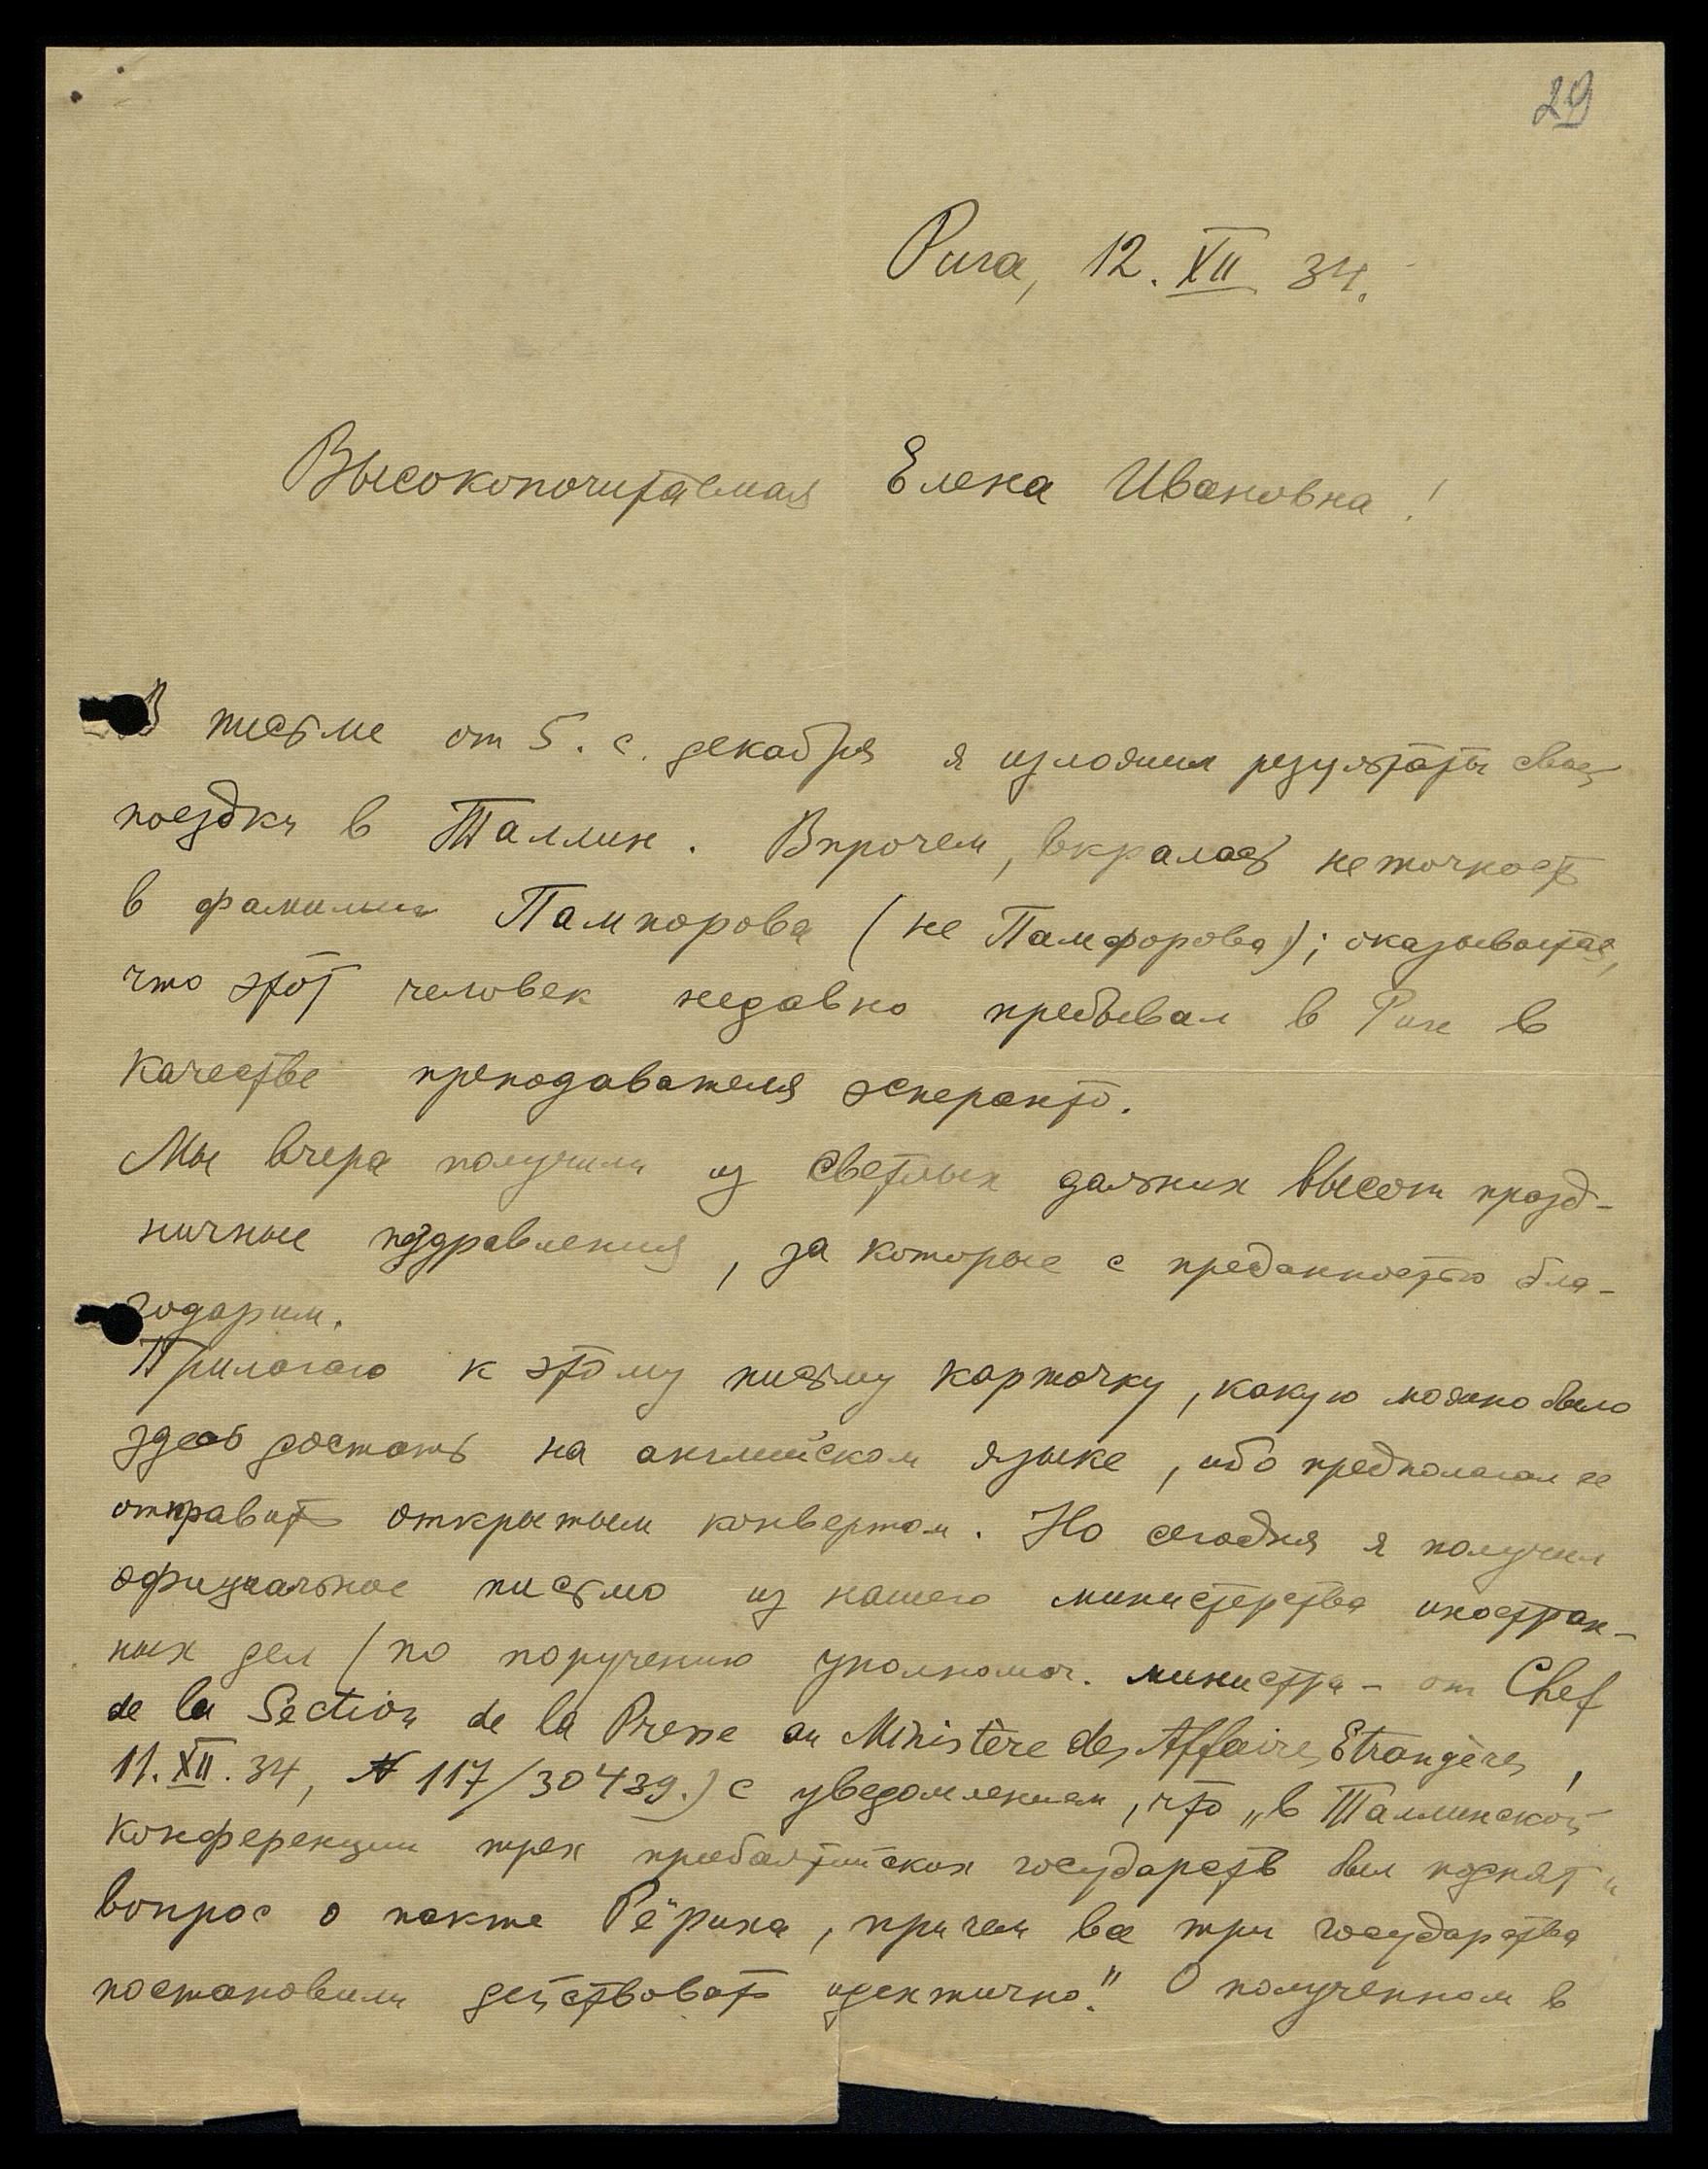 29
Рига, 12. XII 34.
Высокопочитаемая Елена Ивановна!
В письме от 5. с. декабря я изложил результаты своей
поездки в Таллин. Впрочем, вкралась неточность
в фамилии Пампорова (не Памфорова); оказывается,
что этот человек недавно пребывал в Риге в
качестве преподавателя эсперанто.
Мы вчера получили из светлых дальних высот празд-
ничные поздравления, за которые с преданностью бла-
годарим.
Прилагаю к этому письму карточку, какую можно было
здесь достать на английском языке, ибо предполагал ее
отправить открытым конвертом. Но сегодня я получил
официальное письмо из нашего министерства иностран-
ных дел (по поручению уполномоч. министра - от Chef
de la Section de la Presse au Ministère des Affaires Etrangères,
11. XII. 34, N 117/30439.) с уведомлением, что „в Таллинской
конференции трех прибалтийских государств был поднят
вопрос о пакте Рёриха, причем все три государства
постановили действовать идентично." О полученном в